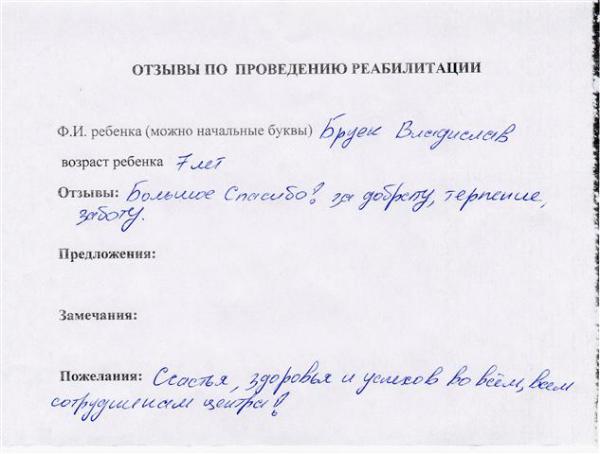 ОТЗЫВЫ ПО ПРОВЕДЕНИЮ РЕАБИЛИТАЦИИ
Ф.И. ребенка (можно начальные буквы) Бруек Владислав
возраст ребенка 7 лет
Отзывы: Большое Спасибо! за доброту, терпение,
заботу.
Предложения:
Замечания:
Пожелания: Счастья, здоровья и успехов во всём, всем
сотрудникам центра!